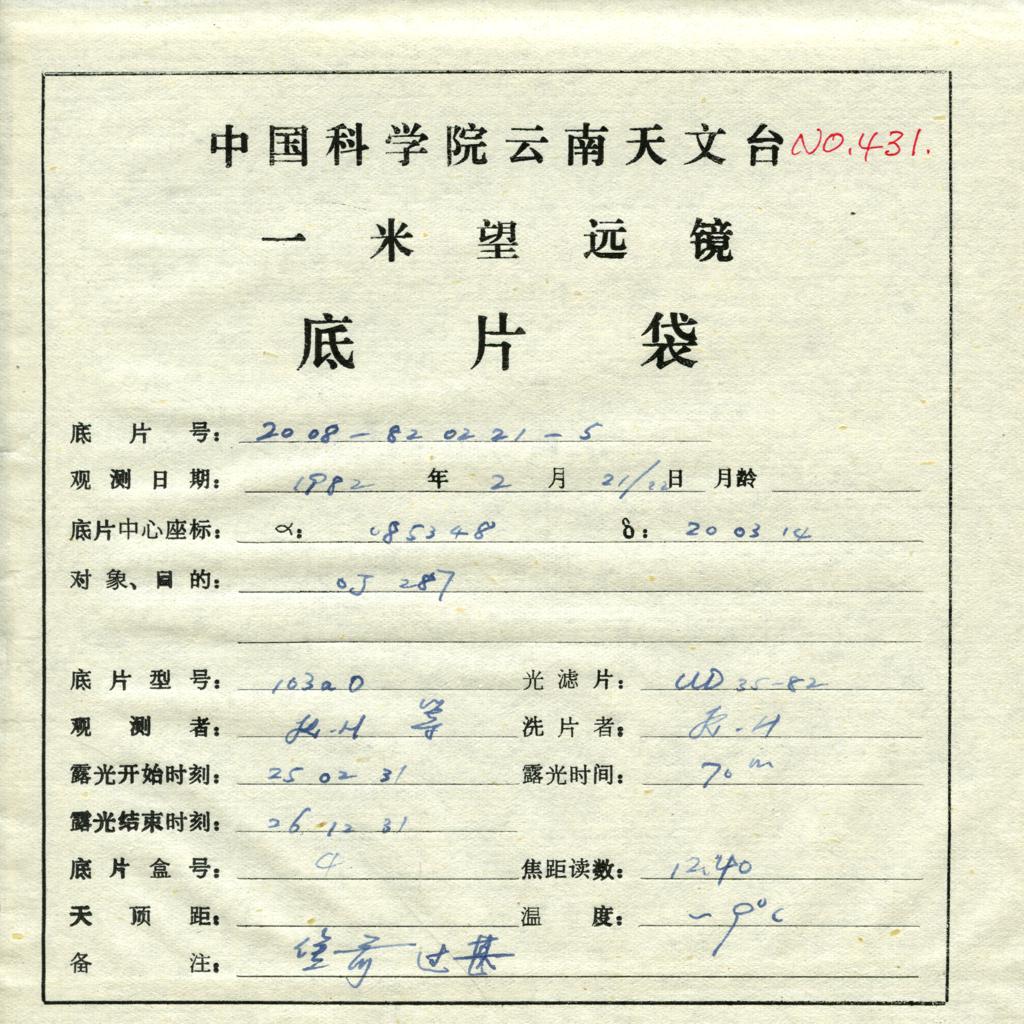 中国科学院云南天文台 NO.431.
一米望远镜
底片袋
底片号: 2008-820221-5
观测日期: 1982 年 2 月 21/22 日 月龄
底片中心座标: α: 085348 δ: 20 03 14
对象、目的: OJ 287
底片型号: 103aO 光滤片:
观测者: 等 洗片者:
露光开始时刻: 25 02 31 露光时间: 70m
露光结束时刻: 26 12 31
底片盒号: 4 焦距读数: 12.40
天顶距: 温度: -9°C
备注: